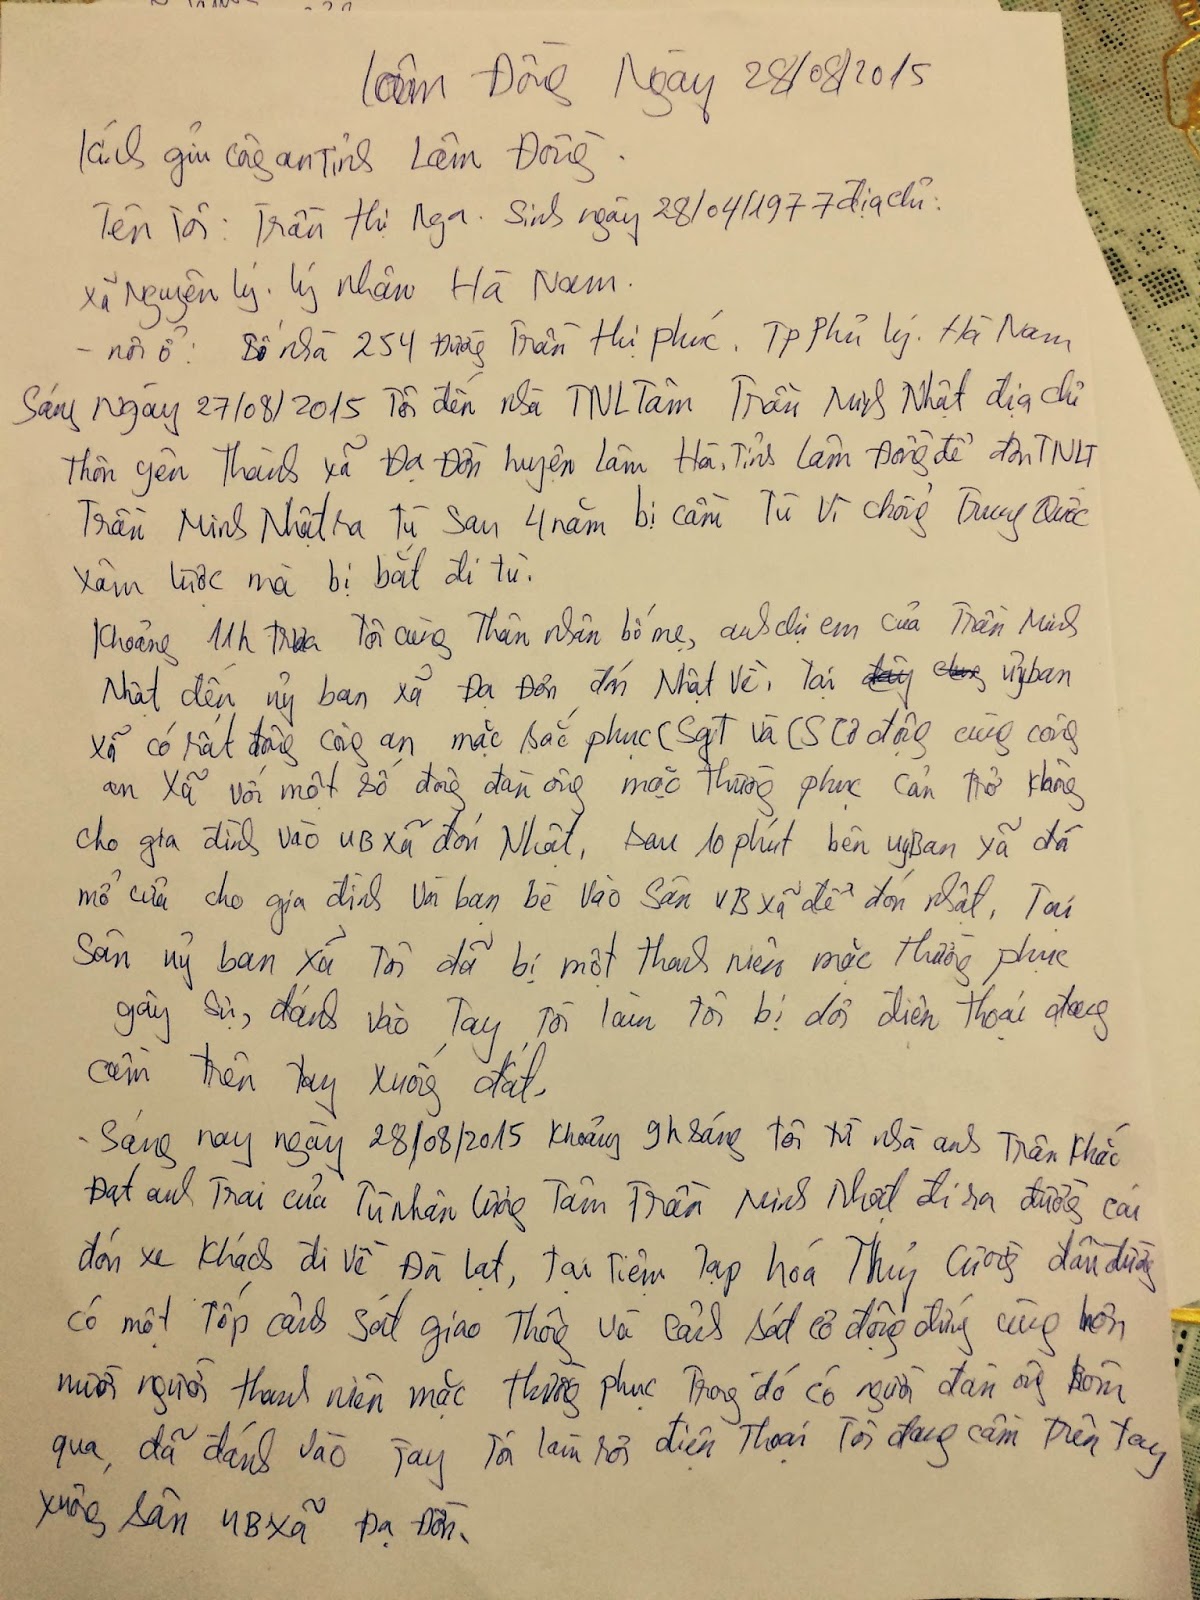 Lâm Đồng Ngày 28/08/2015
Kính gửi công an Tỉnh Lâm Đồng.
Tên Tôi: Trần Thị Nga. Sinh ngày 28/04/1977 địa chỉ:
xã Nguyên Lý. Lý nhân Hà Nam.
- nơi ở: Số nhà 254 Đường Trần Thị phúc. Tp Phủ Lý. Hà Nam
Sáng Ngày 27/08/2015 Tôi đến nhà TNLTâm Trần Minh Nhật địa chỉ
thôn yên Thành xã Đạ Đờn huyện Lâm Hà, Tỉnh Lâm Đồng để đón TNLT
Trần Minh Nhật ra tù sau 4 năm bị cầm Tù Vì chống Trung Quốc
xâm lược mà bị bắt đi tù.
Khoảng 11h trưa Tôi cùng Thân nhân bố mẹ, anh chị em của Trần Minh
Nhật đến uỷ ban xã Đạ Đờn đón Nhật Về, Tại uỷ ban
xã có rất đông công an mặc sắc phục CSGT và CS Cơ động cùng công
an xã với một số đông đàn ông mặc thường phục cản trở không
cho gia đình vào UB xã đón Nhật, sau 10 phút bên uỷ Ban xã đã
mở cửa cho gia đình và bạn bè vào Sân UB xã để đón nhật, Tại
Sân uỷ ban xã Tôi đã bị một thanh niên mặc thường phục
gây sự, đánh vào Tay Tôi làm tôi bị dơi điện thoại đang
cầm trên tay xuống đất,
- Sáng nay ngày 28/08/2015 khoảng 9h sáng tôi từ nhà anh Trần Khắc
Đạt anh Trai của Tù Nhân Lương Tâm Trần Minh Nhật đi ra đường cái
đón xe khách đi về Đà Lạt, tại tiệm Tạp hóa Thuỷ Cường đầu đường
có một Tốp cảnh sát giao Thông và cảnh sát cơ động đứng cùng hơn
mười người thanh niên mặc thường phục Trong đó có người đàn ông hôm
qua, đã đánh vào Tay Tôi làm rơi điện Thoại Tôi đang cầm Trên tay
xuống sân UB xã Đạ Đờn.